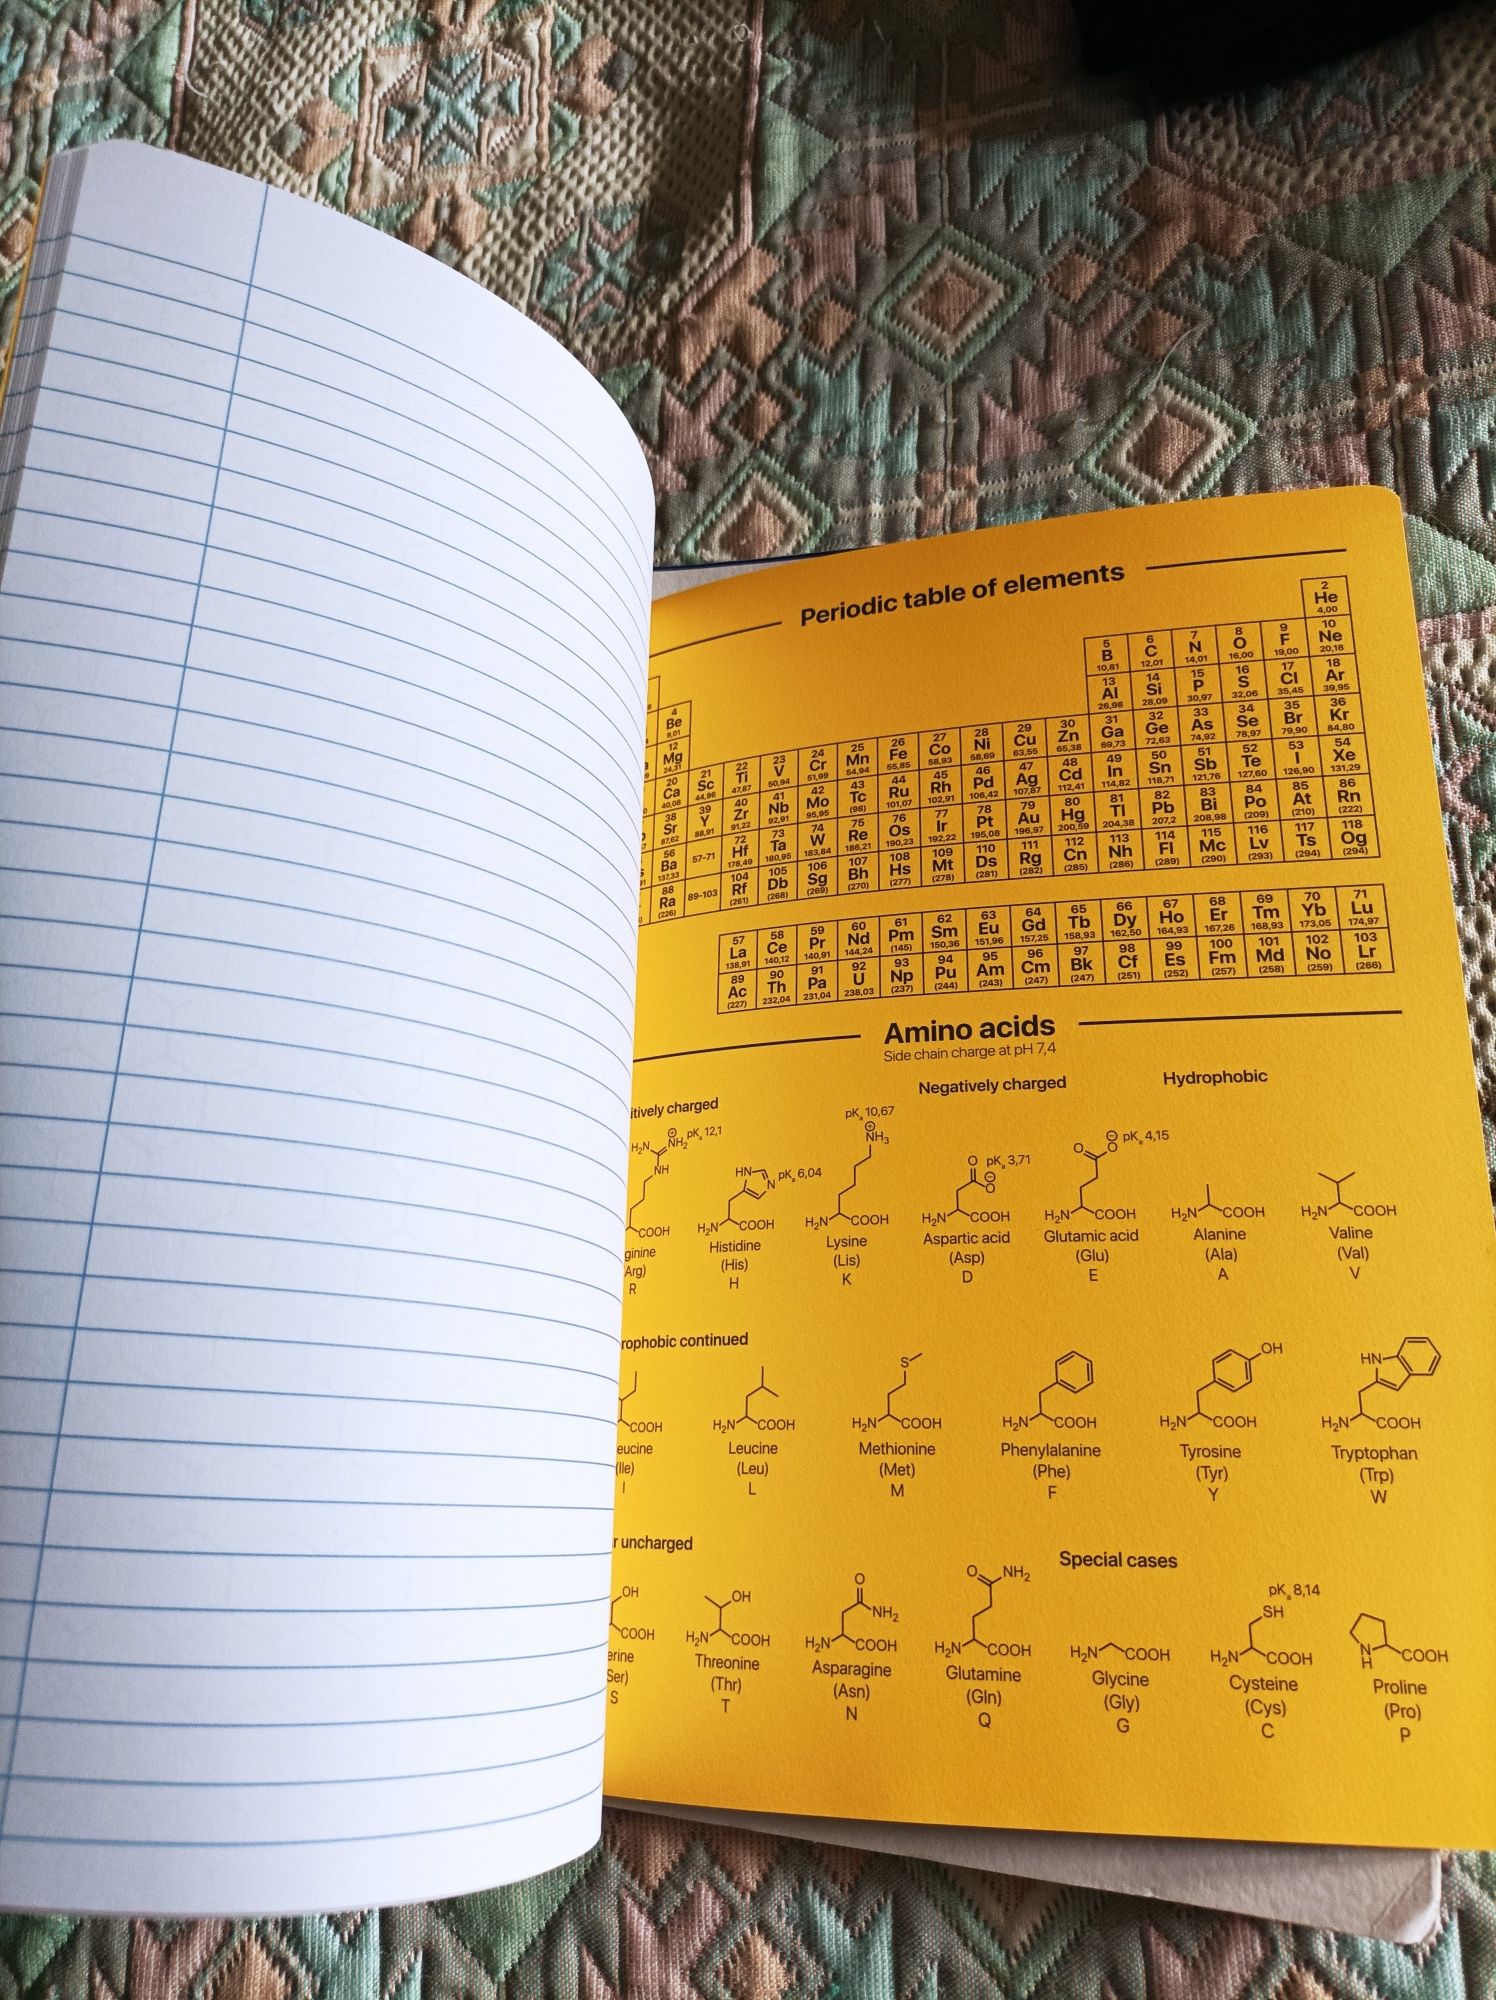 Periodic table of elements
2
He
4,00
5 6 7 8 9 10
B C N O F Ne
10,81 12,01 14,01 16,00 19,00 20,18
4
Be
9,01
13 14 15 16 17 18
Al Si P S Cl Ar
26,98 28,09 30,97 32,06 35,45 39,95
12
Mg
24,31
20 21 22 23 24 25 26 27 28 29 30 31 32 33 34 35 36
Ca Sc Ti V Cr Mn Fe Co Ni Cu Zn Ga Ge As Se Br Kr
40,08 44,96 47,87 50,94 51,99 54,94 55,85 58,93 58,69 63,55 65,38 69,73 72,63 74,92 78,97 79,90 84,80
38 39 40 41 42 43 44 45 46 47 48 49 50 51 52 53 54
Sr Y Zr Nb Mo Tc Ru Rh Pd Ag Cd In Sn Sb Te I Xe
87,62 88,91 91,22 92,91 95,95 (98) 101,07 102,91 106,42 107,87 112,41 114,82 118,71 121,76 127,60 126,90 131,29
56 57-71 72 73 74 75 76 77 78 79 80 81 82 83 84 85 86
Ba Hf Ta W Re Os Ir Pt Au Hg Tl Pb Bi Po At Rn
137,33 178,49 180,95 183,84 186,21 190,23 192,22 195,08 196,97 200,59 204,38 207,2 208,98 (209) (210) (222)
88 89-103 104 105 106 107 108 109 110 111 112 113 114 115 116 117 118
Ra Rf Db Sg Bh Hs Mt Ds Rg Cn Nh Fl Mc Lv Ts Og
(226) (261) (268) (269) (270) (277) (278) (281) (282) (285) (286) (289) (290) (293) (294) (294)
57 58 59 60 61 62 63 64 65 66 67 68 69 70 71
La Ce Pr Nd Pm Sm Eu Gd Tb Dy Ho Er Tm Yb Lu
138,91 140,12 140,91 144,24 (145) 150,36 151,96 157,25 158,93 162,50 164,93 167,26 168,93 173,05 174,97
89 90 91 92 93 94 95 96 97 98 99 100 101 102 103
Ac Th Pa U Np Pu Am Cm Bk Cf Es Fm Md No Lr
(227) 232,04 231,04 238,03 (237) (244) (243) (247) (247) (251) (252) (257) (258) (259) (266)
Amino acids
Side chain charge at pH 7,4
itively charged Negatively charged Hydrophobic
pKa 12,1 pKa 6,04 pKa 10,67 pKa 3,71 pKa 4,15
H₂N ⊕ NH₂ NH HN N ⊕ NH₃ O ⊖ O O ⊖ O
COOH H₂N COOH H₂N COOH H₂N COOH H₂N COOH H₂N COOH H₂N COOH
ginine Histidine Lysine Aspartic acid Glutamic acid Alanine Valine
Arg) (His) (Lis) (Asp) (Glu) (Ala) (Val)
R H K D E A V
rophobic continued
S OH HN
COOH H₂N COOH H₂N COOH H₂N COOH H₂N COOH H₂N COOH
eucine Leucine Methionine Phenylalanine Tyrosine Tryptophan
(Ile) (Leu) (Met) (Phe) (Tyr) (Trp)
I L M F Y W
r uncharged Special cases
OH OH O NH₂ O NH₂ pKa 8,14 SH
COOH H₂N COOH H₂N COOH H₂N COOH H₂N COOH H₂N COOH N H COOH
erine Threonine Asparagine Glutamine Glycine Cysteine Proline
Ser) (Thr) (Asn) (Gln) (Gly) (Cys) (Pro)
S T N Q G C P